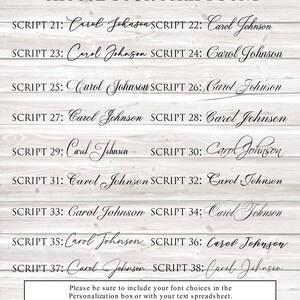 SCRIPT 21: Carol Johnson SCRIPT 22: Carol Johnson
SCRIPT 23: Carol Johnson SCRIPT 24: Carol Johnson
SCRIPT 25: Carol Johnson SCRIPT 26: Carol Johnson
SCRIPT 27: Carol Johnson SCRIPT 28: Carol Johnson
SCRIPT 29: Carol Johnson SCRIPT 30: Carol Johnson
SCRIPT 31: Carol Johnson SCRIPT 32: Carol Johnson
SCRIPT 33: Carol Johnson SCRIPT 34: Carol Johnson
SCRIPT 35: Carol Johnson SCRIPT 36: Carol Johnson
SCRIPT 37: Carol Johnson SCRIPT 38: Carol Johnson
Please be sure to include your font choices in the
Personalization box or with your text spreadsheet.